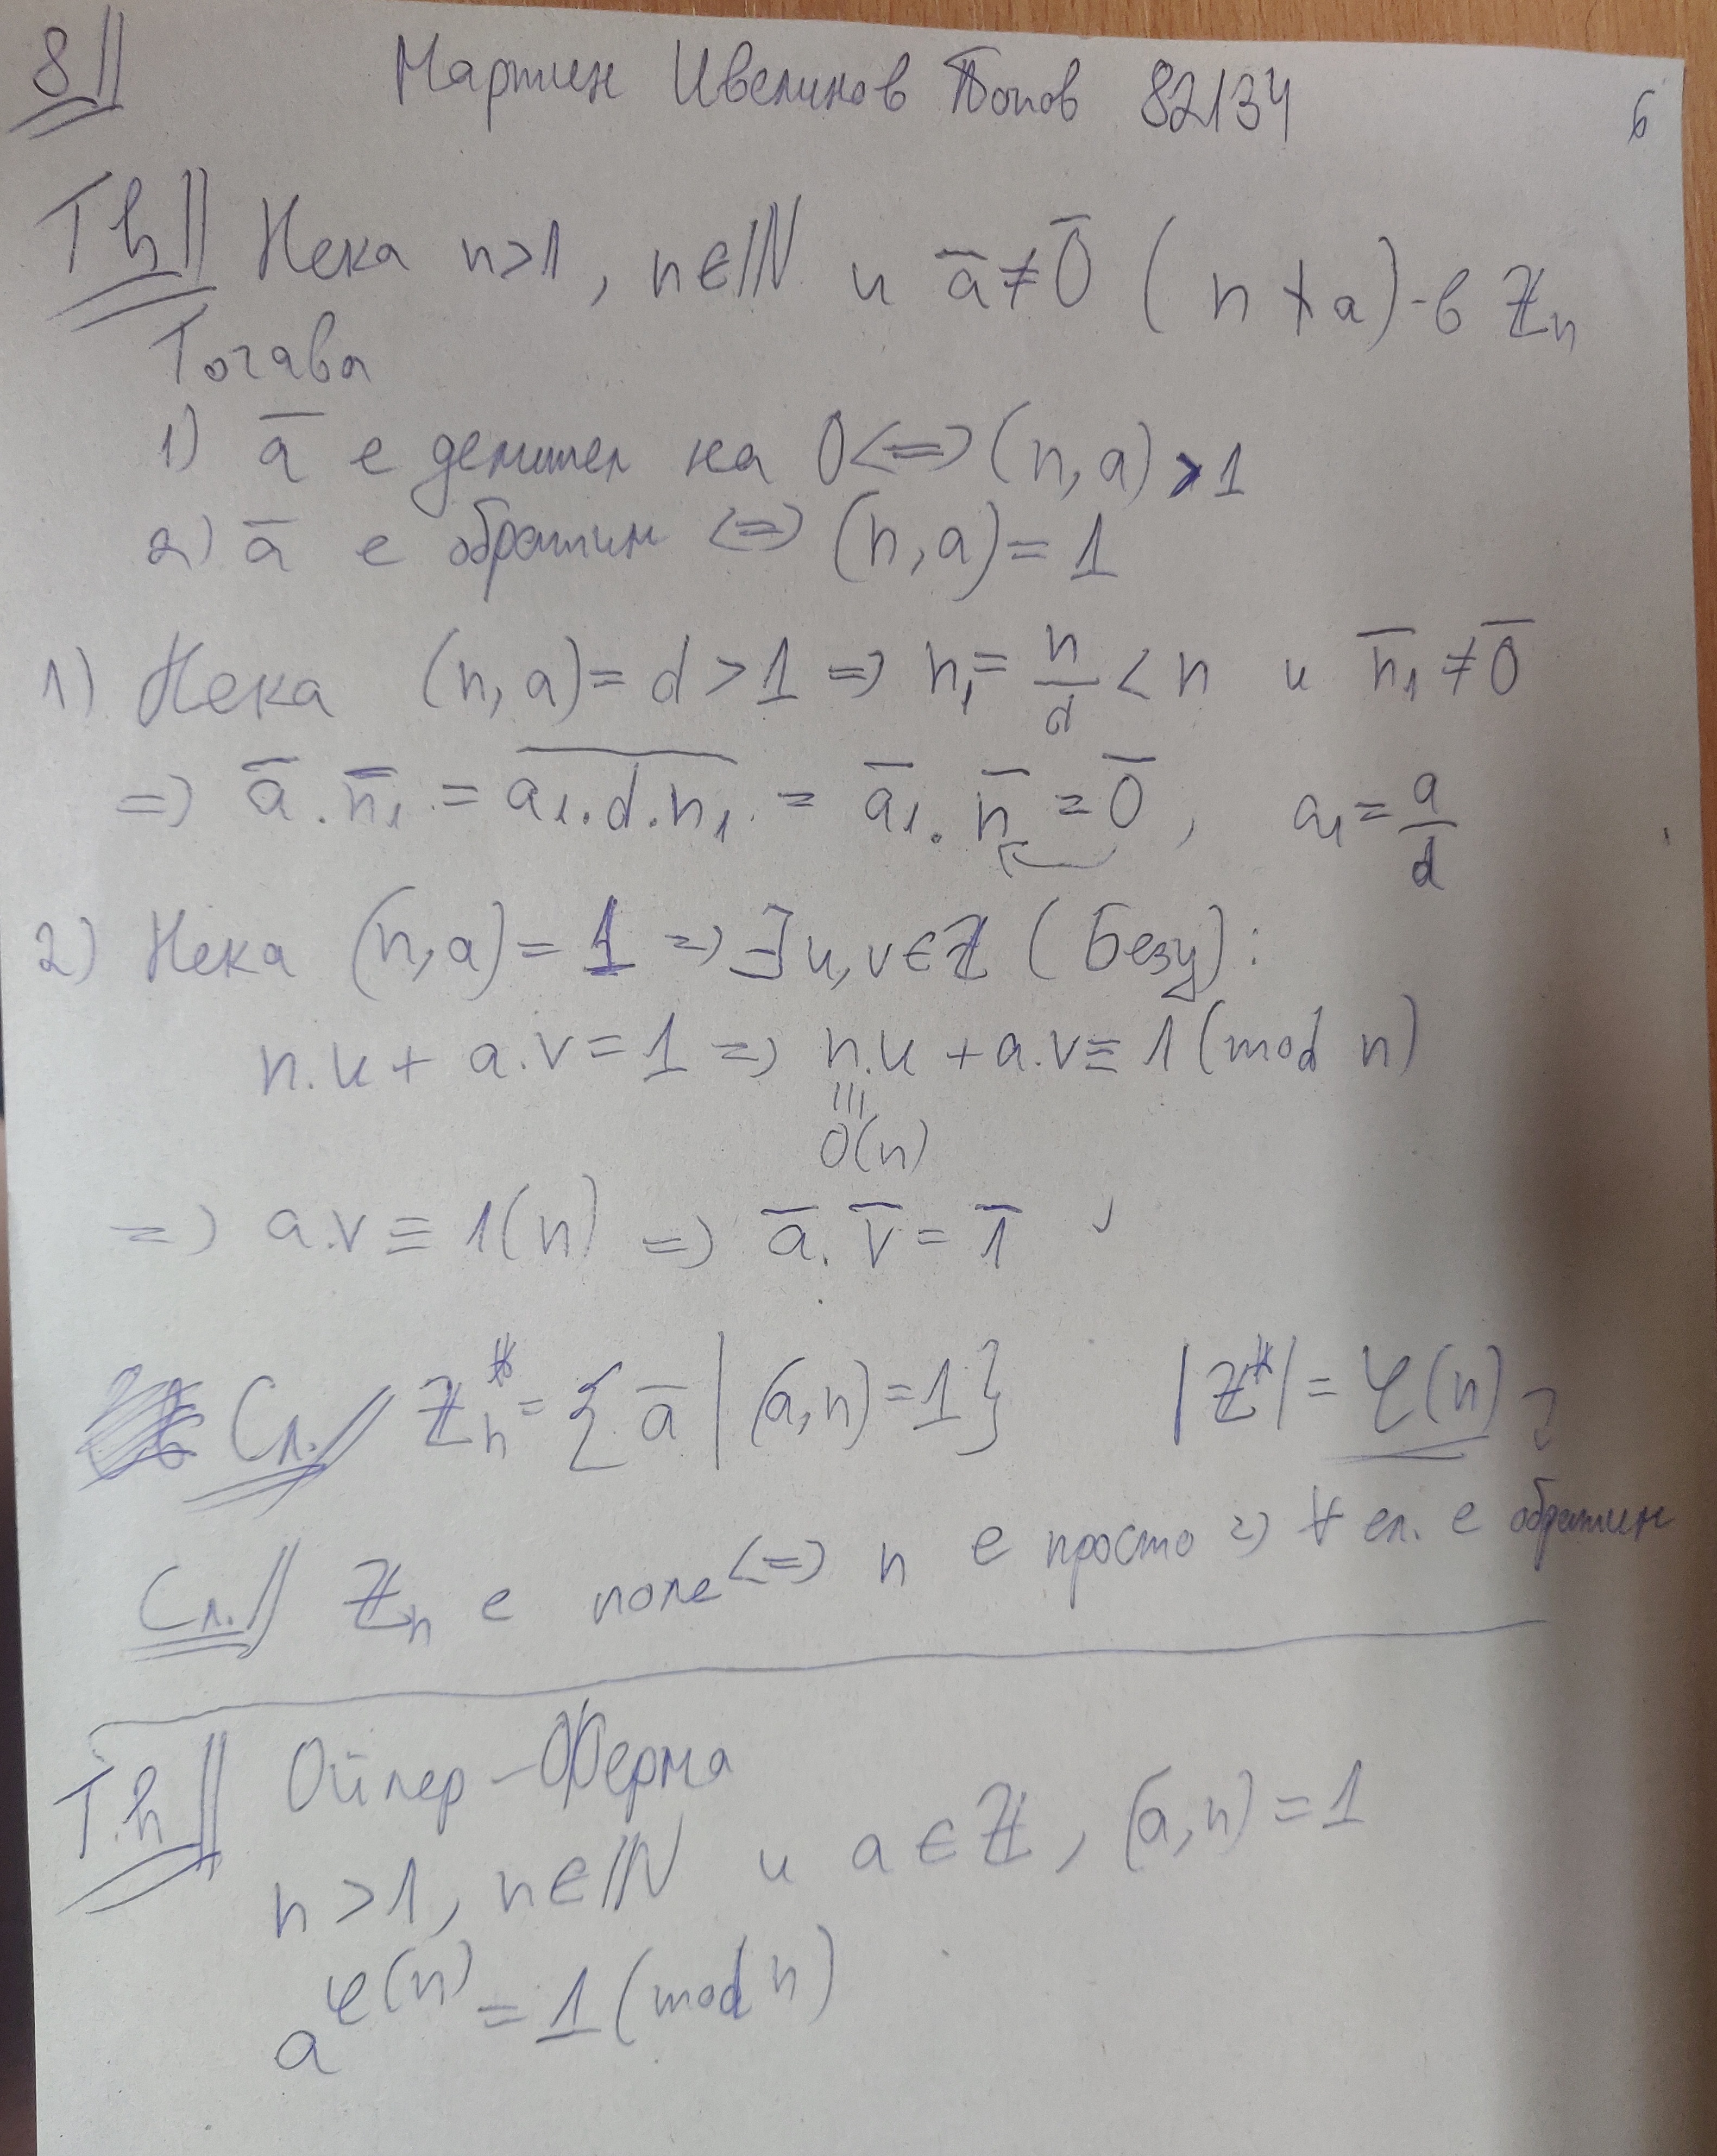 8 Мартин Ивелинов Попов 82134 6
Th Нека n>1, n∈ℕ и a̅≠0̅ (n∤a) - в ℤₙ
Тогава
1) a̅ е делител на 0 <=> (n,a)>1
2) a̅ е обратим <=> (n,a)=1
1) Нека (n,a)=d>1 => n₁=n/d<n и n̅₁≠0̅
=> a̅.n̅₁ = a₁.d.n₁ = a̅₁.n̅ = 0̅, a₁=a/d
2) Нека (n,a)=1 => ∃u,v∈ℤ (Безу):
n.u+a.v=1 => n.u+a.v≡1(mod n)
≡
0(n)
=> a.v≡1(n) => a̅.v̅=1̅
Сл. ℤₙ*={a̅|(a,n)=1} |ℤ*|=φ(n)
Сл. ℤₙ е поле <=> n е просто => ∀ ел. е обратим
Th Ойлер-Ферма
n>1, n∈ℕ и a∈ℤ, (a,n)=1
a^φ(n)=1(mod n)